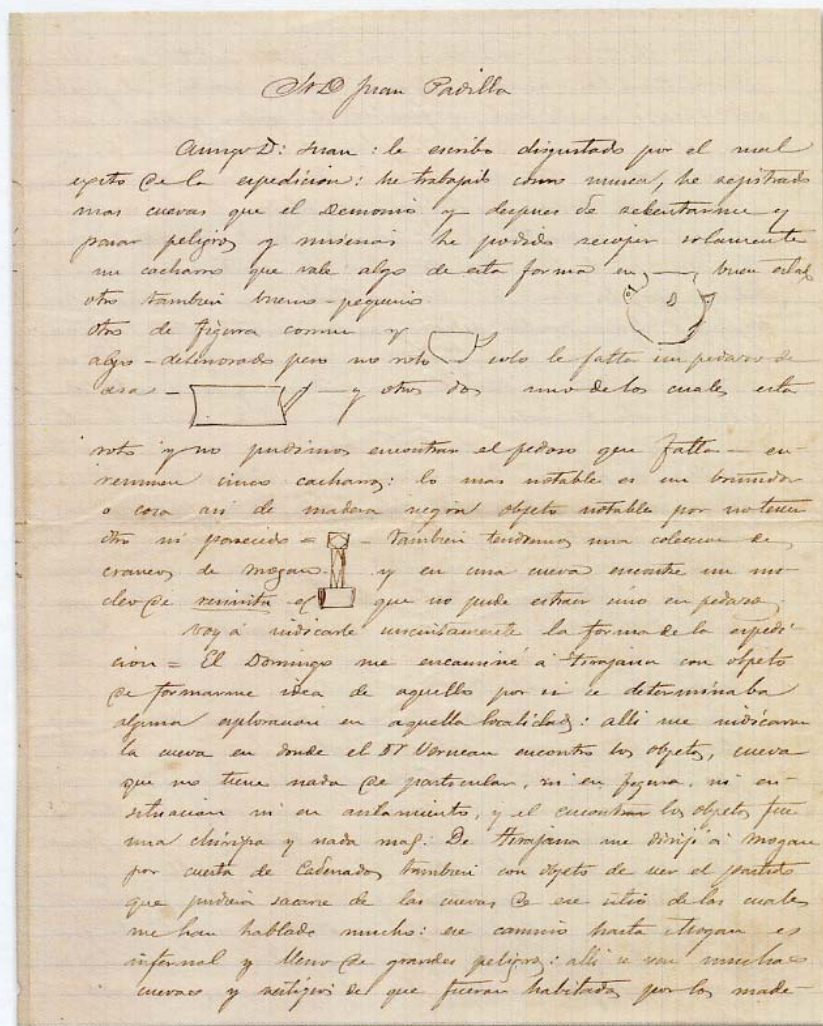 Sr D Juan Padilla
Amigo D: Juan: le escribo disgustado por el mal
exito de la espedicion: he trabajado como nunca, he registrado
mas cuevas que el Demonio y despues de rebentarme y
pasar peligros y miserias he podido recojer solamente
un cacharro que vale algo de esta forma en buen estado
otro tambien bueno - pequeño
otro de figura comun y
algo - deteriorado pero no roto solo le falta un pedazo de
asa - y otros dos uno de los cuales esta
roto y no pudimos encontrar el pedaso que falta - en
resumen cinco cacharros: lo mas notable es un
o cosa asi de madera objeto notable por no tener
otro ni parecido = - tambien tendremos una coleccion de
craneos de mogan. y en una cueva encontre un mo-
que no pude estraer sino en pedazos.
Voy á indicarle sucintamente la forma de la espedi-
cion = El Domingo me encaminé á Tirajana con objeto
de formarme idea de aquello por si se determinaba
alguna esploracion en aquella localidad: alli me indicaron
la cueva en donde el Dr Verneau encontro los objetos, cueva
que no tiene nada de particular, ni en figura, ni en
situacion ni en aislamiento, y el encontrar los objetos fue
una chiripa y nada mas. De Tirajana me dirijí á Mogan
por cuesta de Cadenados tambien con objeto de ver el partido
que pudiera sacarse de las cuevas de ese sitio de las cuales
me han hablado mucho: ese camino hasta Mogan es
infernal y lleno de grandes peligros: alli se ven muchas
cuevas y vestigios de que fueran habitadas por los